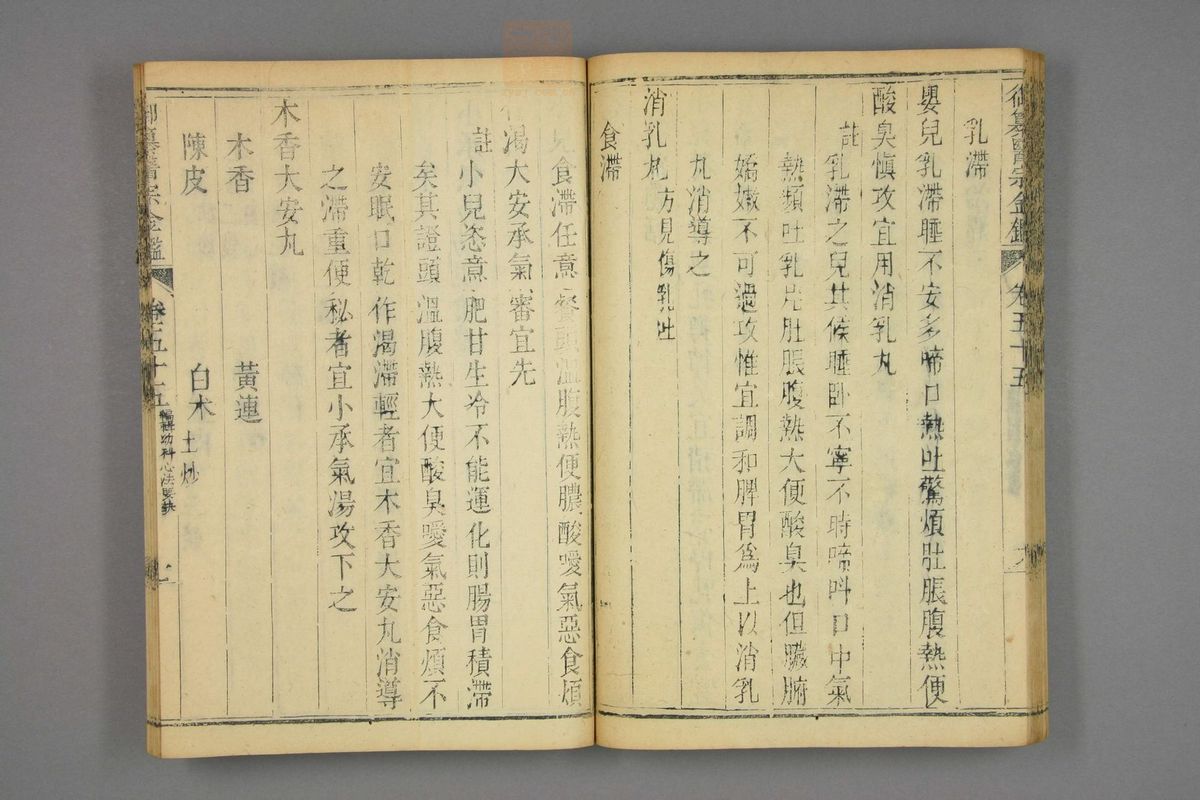 御纂醫宗金鑑 卷五十五
乳滯
嬰兒乳滯睡不安多啼口熱吐驚煩肚脹腹熱便
酸臭慎攻宜用消乳丸
註乳滯之兒其候睡卧不寧不時啼呌口中氣
熱頻吐乳片肚脹腹熱大便酸臭也但臟腑
嬌嫩不可過攻惟宜調和脾胃為上以消乳
丸消導之
消乳丸 方見傷乳吐
食滯
食滯任意餐頭溫腹熱便膿酸噯氣惡食煩
渴大安承氣審宜先
註小兒恣意肥甘生冷不能運化則腸胃積滯
矣其證頭溫腹熱大便酸臭噯氣惡食煩不
安眠口乾作渴滯輕者宜木香大安丸消導
之滯重便秘者宜小承氣湯攻下之
木香大安丸
木香 黃連
陳皮 白木 土炒
御纂醫宗金鑑 卷五十五 編輯幼科心法要訣